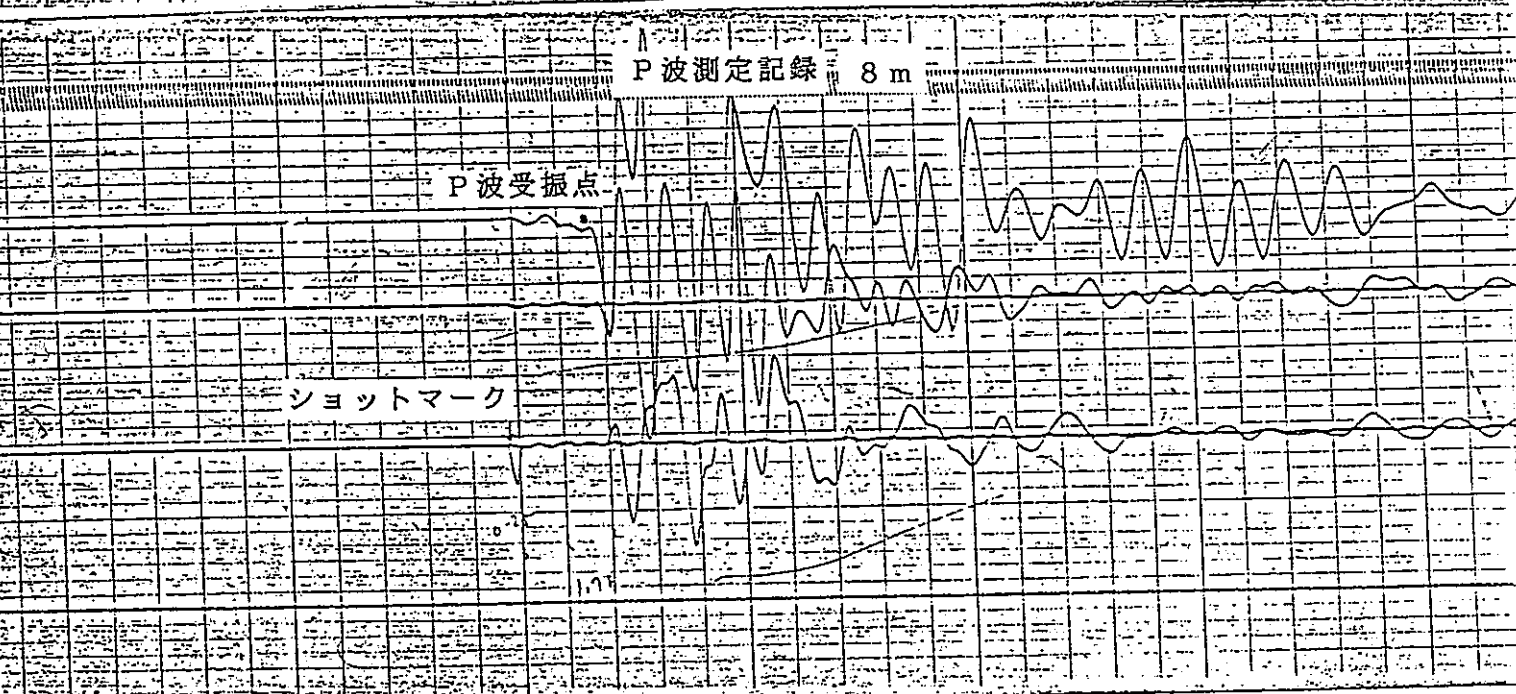 P波測定記録 8m
P波受振点
ショットマーク